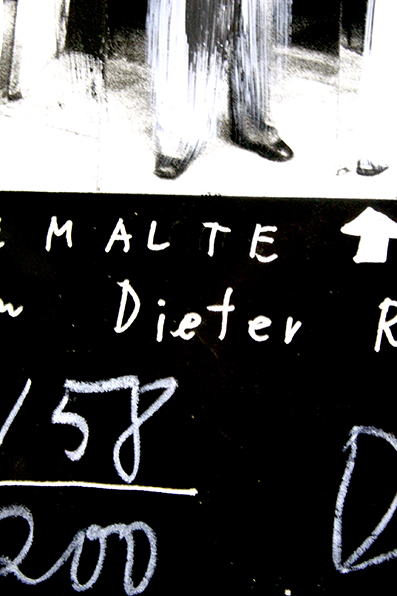 E MALTE
Dieter R
158
200
D